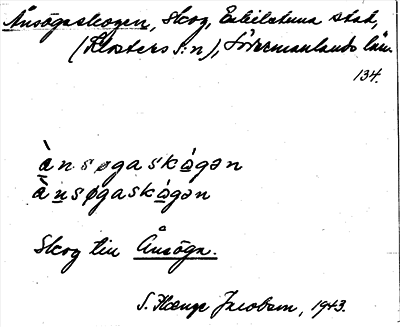 Ånsögaskogen, Skog, Eskilstuna stad,
(Klosters S:n), Södermanlands län.
134.
ànsøgaskágən
ànsøgaskágən
Skog till Ånsöga.
S. Hænge Jacobsen, 1943.